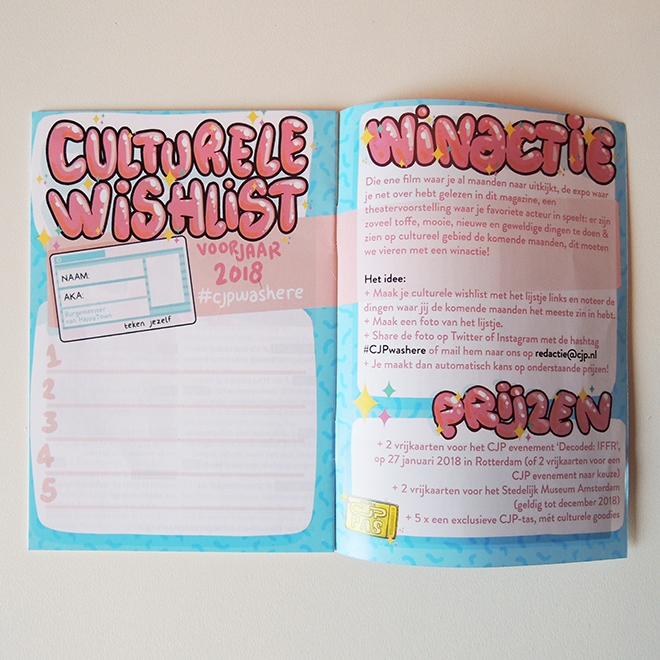 CULTURELE
WISHLIST
VOORJAAR
2018
#cjpwashere
NAAM:
AKA:
Burgemeester
van HappyTown
teken jezelf
1
2
3
4
5
WINACTIE
Die ene film waar je al maanden naar uitkijkt, de expo waar
je net over hebt gelezen in dit magazine, een
theatervoorstelling waar je favoriete acteur in speelt: er zijn
zoveel toffe, mooie, nieuwe en geweldige dingen te doen &
zien op cultureel gebied de komende maanden, dit moeten
we vieren met een winactie!
Het idee:
+ Maak je culturele wishlist met het lijstje links en noteer de
dingen waar jij de komende maanden het meeste zin in hebt.
+ Maak een foto van het lijstje.
+ Share de foto op Twitter of Instagram met de hashtag
#CJPwashere of mail hem naar ons op redactie@cjp.nl
+ Je maakt dan automatisch kans op onderstaande prijzen!
PRIJZEN
+ 2 vrijkaarten voor het CJP evenement 'Decoded: IFFR',
op 27 januari 2018 in Rotterdam (of 2 vrijkaarten voor een
CJP evenement naar keuze)
+ 2 vrijkaarten voor het Stedelijk Museum Amsterdam
(geldig tot december 2018)
+ 5 x een exclusieve CJP-tas, mét culturele goodies
CJP
PAS